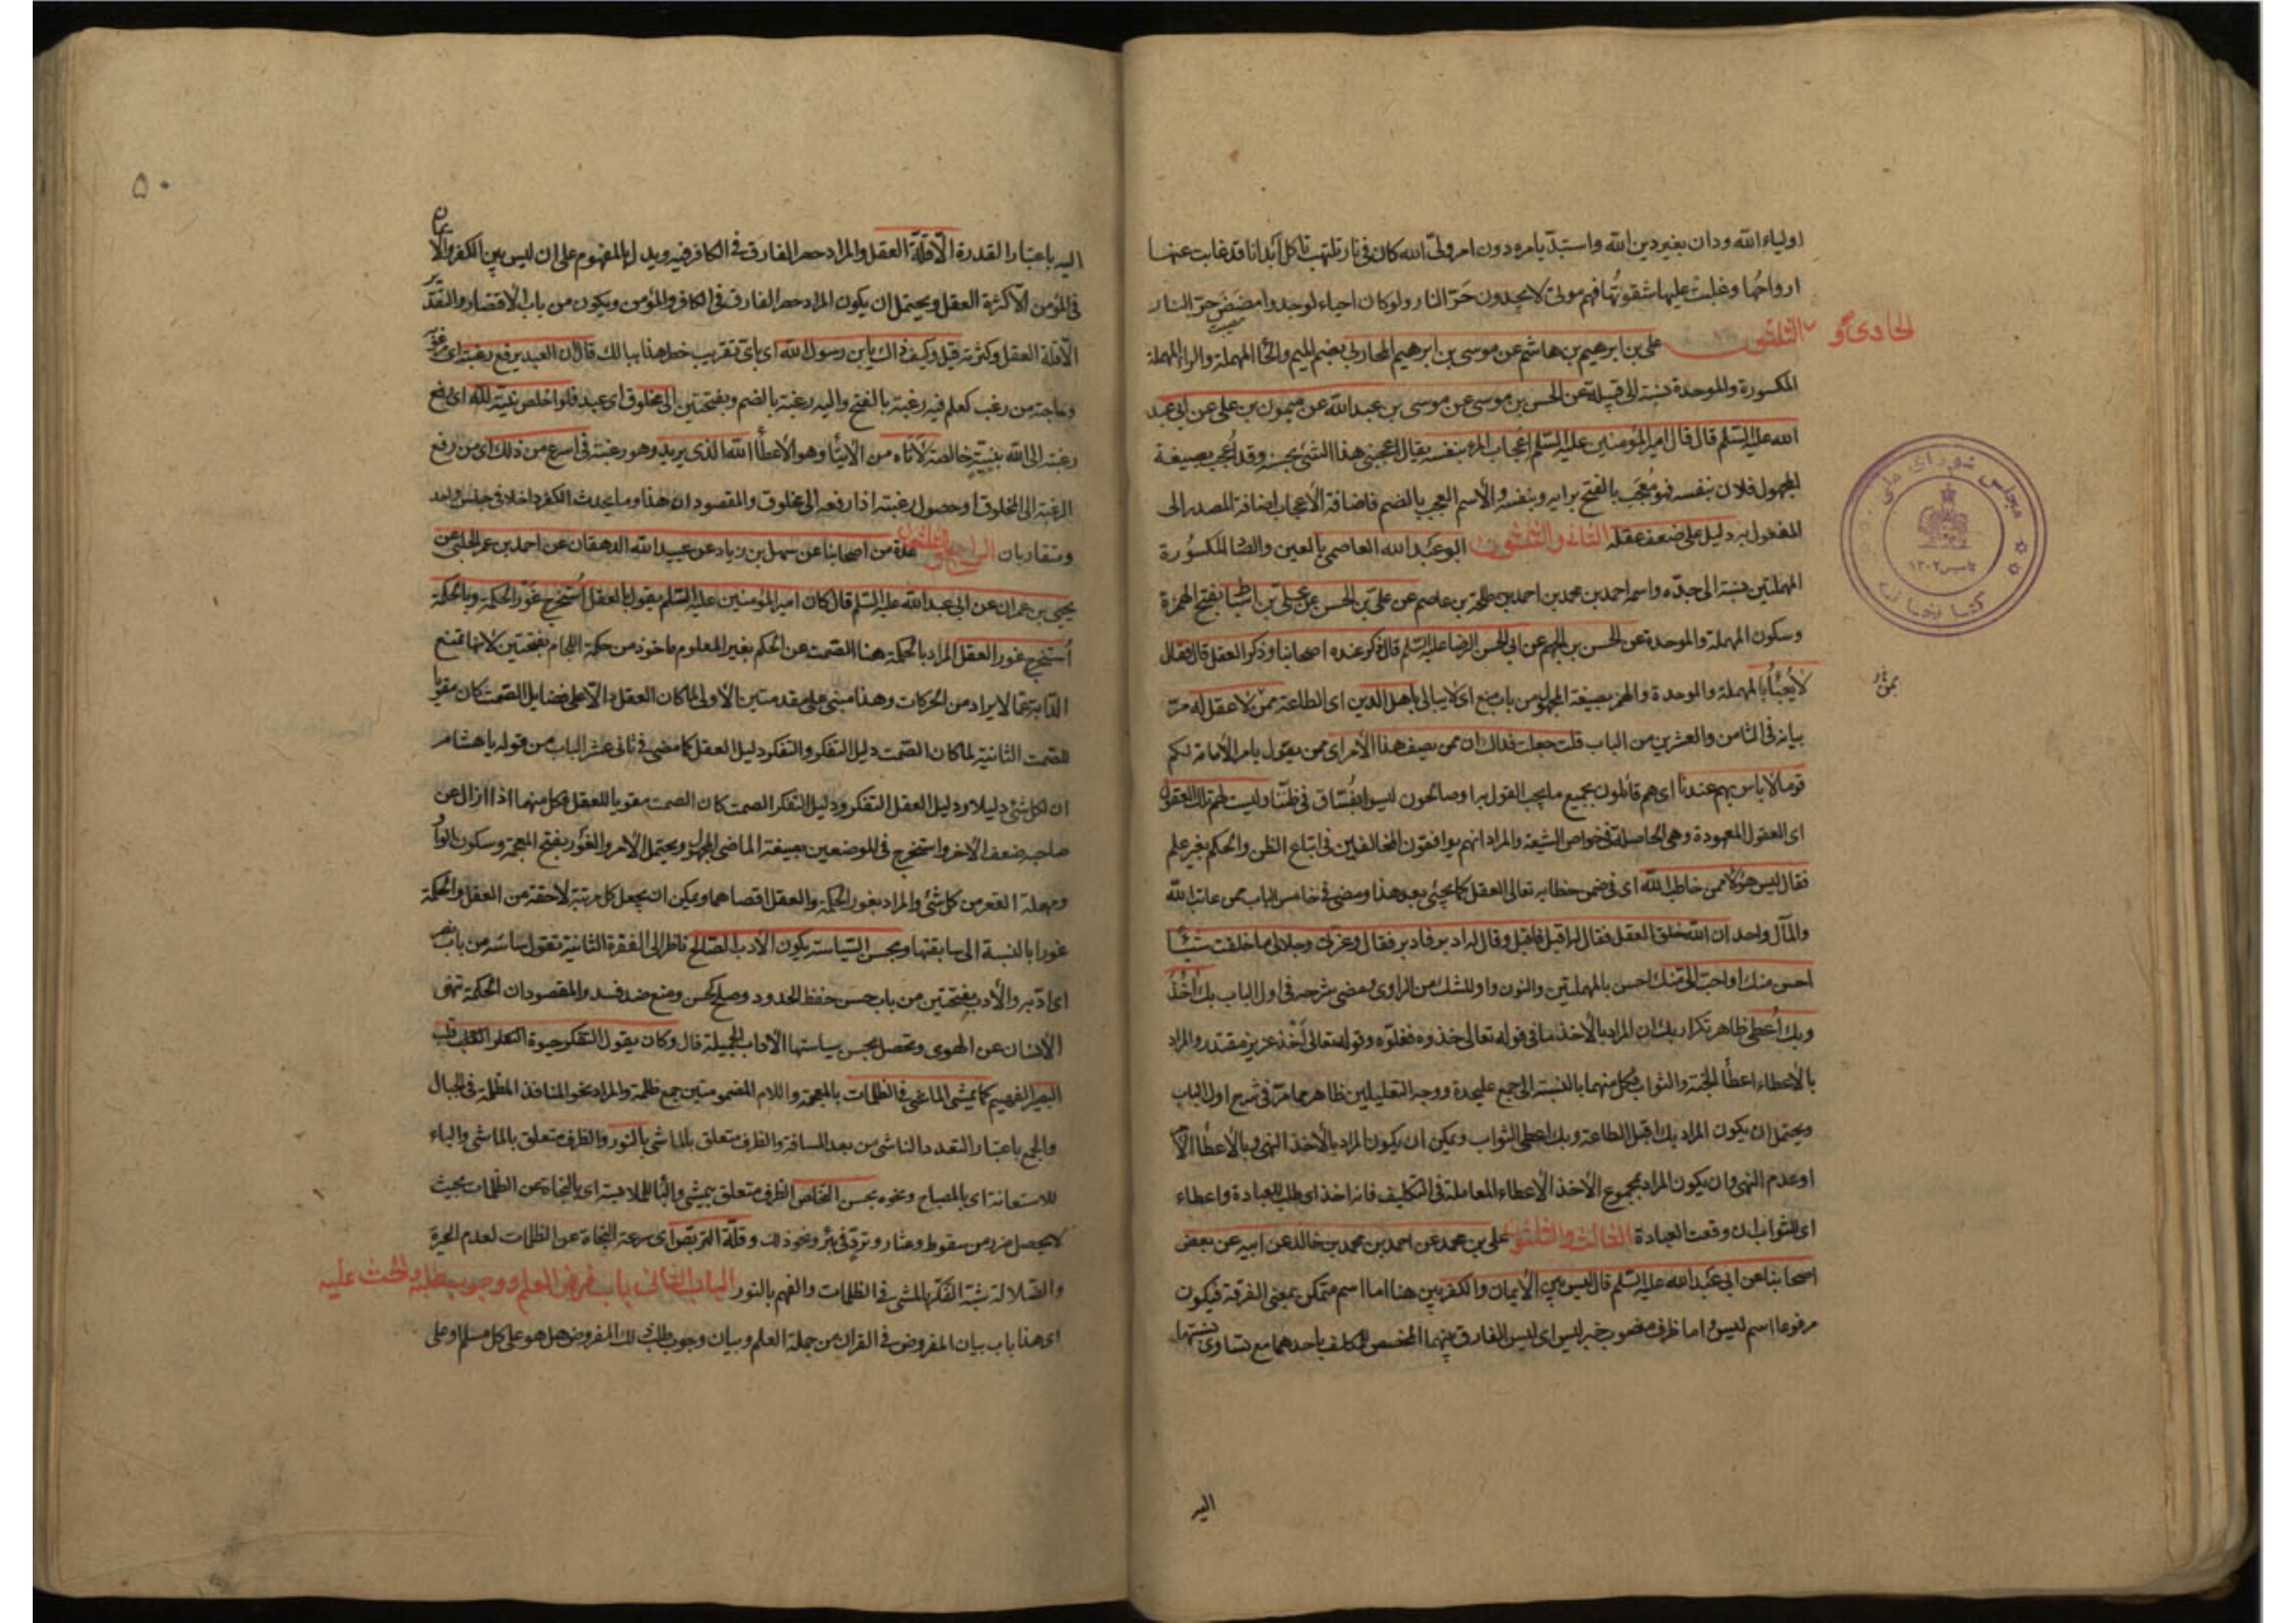 اولياء الله ودان بغير دين الله واستبدّ بامره دون امر ولىّ الله كان فى نار تلتهب تاكل ابدانا قد غابت عنها
ارواحها وغلبت عليها شقوتُها فهم موتى لا يجدون حَرّ النار ولو كان احياء لوجدوا مضض حرّ النار
الحادى و الثلثون على بن ابرهيم بن هاشم عن موسى بن ابرهيم المحاربى بضم الميم والحاء المهملة والراء المهملة
المكسورة والموحدة نسبة الى قبيلة عن الحسن بن موسى عن موسى بن عبد الله عن ميمون بن على عن ابى عبد
الله عليه السّلم قال قال امير المؤمنين عليه السّلم اعجاب المرء بنفسه يقال اعجبنى هذا الشئ بحسنه وقد اُعجِب بصيغة
المجهول فلان بنفسه فهو مُعجَب بالفتح برايه وبنفسه والاسم العجب بالضم فاضافة الاعجاب اضافة المصدر الى
المفعول به دليل على ضعف عقله الثانى والثلثون ابو عبد الله العاصمى بالعين والصاد المكسورة
المهملتين نسبة الى جدّه واسمه احمد بن محمد بن احمد بن طلحة بن عاصم عن على بن الحسن عن على بن اسباط بفتح الهمزة
وسكون المهملة والموحدة عن الحسن بن الجهم عن ابى الحسن الرضا عليه السّلم قال ذكر عنده اصحابنا وذكر العقل قال فقال
لا يُعبَأ بالمهملة والموحدة والهمز بصيغة المجهول من باب منع اى لا يبالى باهل الدين اى الطاعة ممن لا عقل له مرّ
بيانه فى الثامن والعشرين من الباب قلت جعلت فداك ان ممن يصف هذا الأمر اى ممن يقول بامر الأمامة لكم
قوما لا باس بهم عندنا اى هم قائلون بجميع ما يجب القول به او صالحون ليسوا بفُسّاق فى ظنّنا وليست لهم تلك العقول
اى العقول المعهودة وهى الحاصلة فى خواص الشيعة والمراد انهم يوافقون المخالفين فى اتباع الظن والحكم بغير علم
فقال ليس هؤلاء ممن خاطب الله اى فى ضمن خطابه تعالى العقل كما يجئ بعد هذا ومضى فى خامس الباب ممن عاتب الله
والمآل واحد ان الله خلق العقل فقال له اقبل فاقبل وقال له ادبر فادبر فقال وعزتى وجلالى ما خلقت شيئا
احسن منك او احب الىّ منك احسن بالمهملتين والنون واو للشك من الراوى ومضى شرحه فى اول الباب بك آخُذُ
وبك اُعطى ظاهر تكرار بك ان المراد بالأخذ ما فى قوله تعالى خذوه فغلّوه وقوله تعالى اَخْذَ عزيز مقتدر والمراد
بالأعطاء اعطاء الجنة والثواب فكل منهما بالنسبة الى جمع عليحدة ووجه التعليلين ظاهر مما مرّ فى شرح اول الباب
ويحتمل ان يكون المراد بك اقبل الطاعة وبك اعطى الثواب ويمكن ان يكون المراد بالأخذ النهى وبالأعطاء الأمر
او عدم النهى وان يكون المراد بمجموع الأخذ الأعطاء المعاملة فى التكليف فانه اخذ اى طلب للعبادة واعطاء
اى للثواب ان وقعت العبادة الثالث والثلثون على بن محمد عن احمد بن محمد بن خالد عن ابيه عن بعض
اصحابنا عن ابى عبد الله عليه السّلم قال ليس بين الأيمان والكفر بين هنا اما اسم متمكن بمعنى الفرقة فيكون
مرفوعا اسم ليس واما ظرف منصوب خبر ليس اى ليس الفارق بينهما المخصص للمكلف باحدهما مع تساوى نسبتهما
اليه
مجلس شوراى ملى
تاسيس ١٣٠٢
كتابخانه
٥٠
اليه باعتبار القدرة الّا قلّة العقل والمراد حصر الفارق فى الكافر فيه ويدل بالمفهوم على ان ليس بين الكفر والايمان
فى المؤمن الّا كثرة العقل ويحتمل ان يكون المراد حصر الفارق فى الكافر والمؤمن ويكون من باب الاقتصار والتقدير
الّا قلة العقل وكثرته قيل وكيف ذاك يا بن رسول الله اى باىّ تقريب خطر هذا ببالك قال ان العبد يرفع رغبته اى
وحاجته من رغب كعلم فيه رغبة بالفتح واليه رغبة بالضم وبفتحتين الى مخلوق اى عبد فلو اخلص نيته لله اى رفع
رغبته الى الله بنيّة خالصة لَأتاه من الأيتاء وهو الأعطاء الله الذى يريد وهو رغبته فى اسرع من ذلك اى من رفع
الرغبة الى المخلوق او حصول رغبته اذا رفعه الى مخلوق والمقصود ان هذا وما يحدث الكفر داخلا فى جنس واحد
ومتقاربان الرابع والثلثون عدة من اصحابنا عن سهل بن زياد عن عبيد الله الدهقان عن احمد بن عمر الحلبى عن
يحيى بن عمران عن ابى عبد الله عليه السّلم قال كان امير المؤمنين عليه السّلم يقول بالعقل اُستخرج غَوْر الحكمة وبالحكمة
اُستخرج غور العقل المراد بالحكمة هنا الصّمت عن الحكم بغير المعلوم ماخوذ من حكمة اللجام بفتحتين لأنها تمنع
الدّابة عمّا لا يراد من الحركات وهذا مبنى على مقدمتين الأولى لما كان العقل دالّا على فضايل الصّمت كان مقويا
للصّمت الثانية لما كان الصّمت دليل التفكر والتفكر دليل العقل كما مضى فى ثانى عشر الباب من قوله يا هشام
ان لكل شئ دليلا ودليل العقل التفكر ودليل التفكر الصمت كان الصمت مقويا للعقل فكل منهما اذا ازال عن
صاحبه ضعف الأخر واستخرج فى الموضعين بصيغة الماضى المجهول ويحتمل الأمر والغَوْر بفتح المعجمة وسكون الواو
ومهملة القعر من كل شئ والمراد بغور الحكمة والعقل اقصاهما ويمكن ان يجعل كل مرتبة لاحقة من العقل والحكمة
غورا بالنسبة الى سابقتها وبحسن السّياسة يكون الأدب الصّالح ناظر الى الفقرة الثانية تقول ساسه من باب نصر
اى ادّبه والأدب بفتحتين من باب حسن حفظ الحدود وصلح كحسن ومنع ضد فسد والمقصود ان الحكمة تنهى
الأنسان عن الهوى وتحصل بحسن سياستها الآداب الجميلة قال وكان يقول التفكر حيوة قلب
البصير الفهيم كما يمشى الماشى فى الظلمات بالمعجمة واللام المضمومتين جمع ظلمة والمراد نحو المنافذ المظلمة فى الجبال
والجمع باعتبار التعدد الناشى من بعد المسافة والظرف متعلق بالماشى بالنور والظرف متعلق بالماشى والباء
للاستعانة اى بالمصباح ونحوه بحسن التخلص الظرف متعلق بيمشى والباء للملابسة اى بالنجاة من الظلمات بحيث
لا يحصل ضرر من سقوط وعثار وتردّ فى بئر ونحو ذلك وقلّة التربّص اى سرعة النجاة عن الظلمات لعدم الحيرة
والضلالة شبّه التفكر بالمشى فى الظلمات والفهم بالنور الباب الثانى باب فرض العلم ووجوب طلبه والحث عليه
اى هذا باب بيان المفروض فى القران من جملة العلم وبيان وجوب طلب ذلك المفروض هل هو على كل مسلم او على